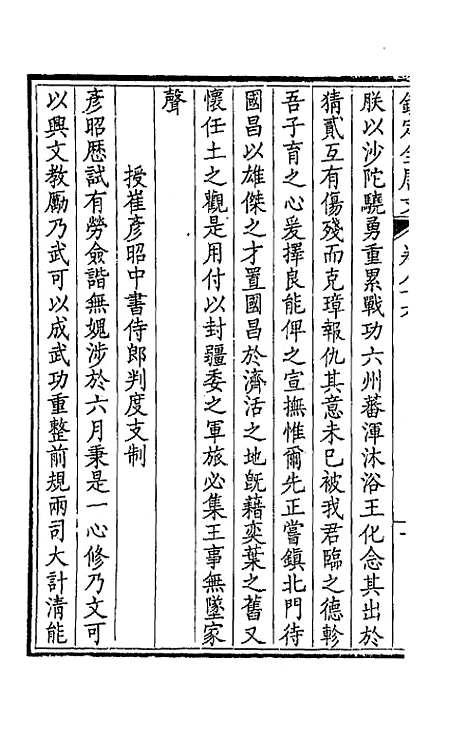 朕以沙陀驍勇重累戰功六州蕃渾沐浴王化念其出於
猜貳互有傷殘而克璋報仇其意未已被我君臨之德軫
吾子育之心爰擇良能俾之宣撫惟爾先正嘗鎮北門待
國昌以雄傑之才置國昌於濟活之地旣藉奕葉之舊又
懷任土之觀是用付以封疆委之軍旅必集王事無墜家
聲
授崔彥昭中書侍郎判度支制
彥昭歷試有勞僉諧無媿涉於六月秉是一心修乃文可
以興文教勵乃武可以成武功重整前規兩司大計淸能